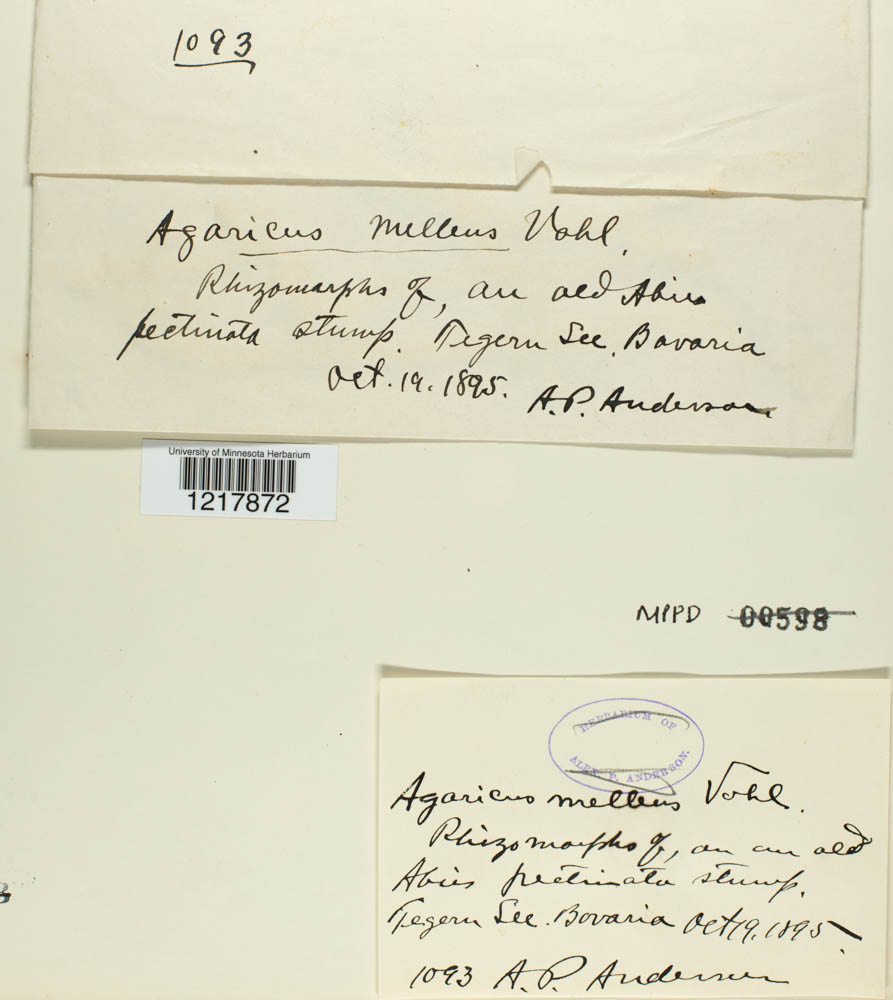 1093
Agaricus melleus Vahl.
Rhizomorphs of, an old Abies
pectinata stump. Tegern See, Bavaria
Oct. 19. 1895.
A.P. Anderson
University of Minnesota Herbarium
1217872
MPPD 00598
HERBARIUM OF
ALEX. P. ANDERSON.
Agaricus melleus Vahl.
Rhizomorphs of, on an old
Abies pectinata stump.
Tegern See. Bavaria Oct 19, 1895.
1093 A. P. Anderson